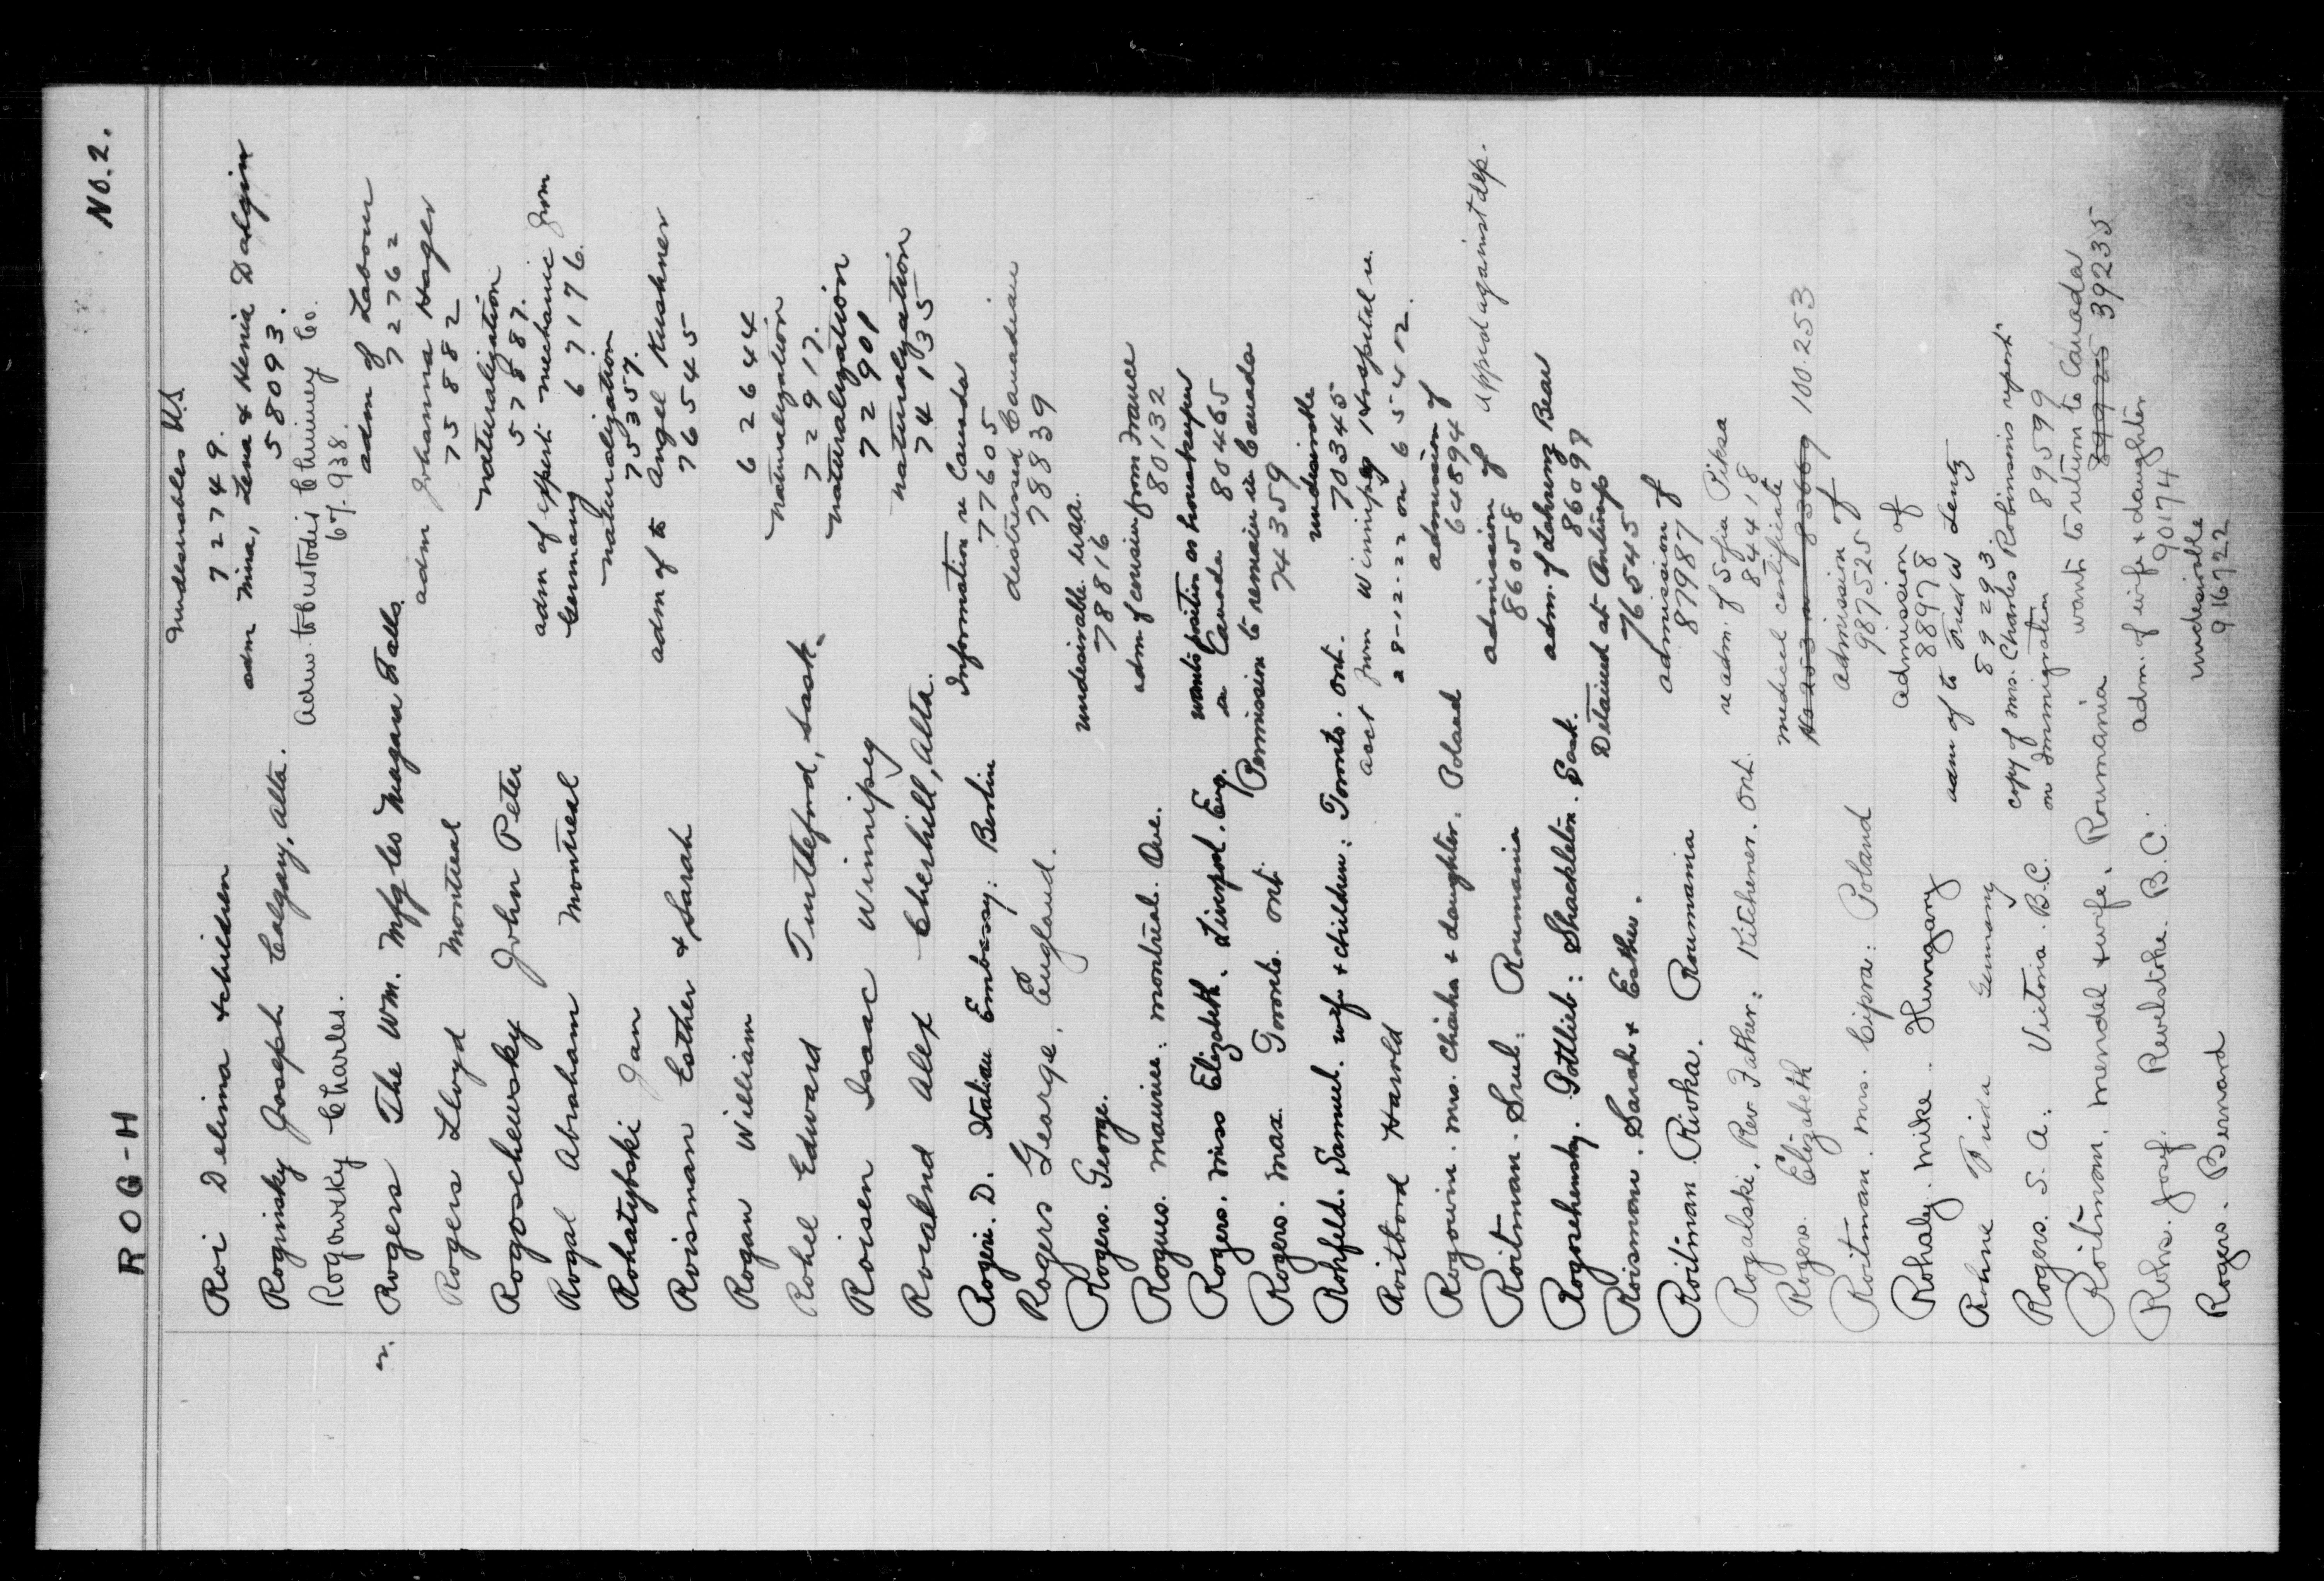 ROG-H
No. 2.
Roi Delima & children undesirables U.S.
72749.
Roginsky Joseph Calgary, Alta. adm Mina, Lena & Henia Dalgin
58093.
Rogowsky Charles. Chimney Co.
67.938.
Rogers The Wm. Mfg Co Niagara Falls adm of Labour
72762
Rogers Lloyd Montreal adm Johanna Hager
75882
Rogoschewsky John Peter naturalization
57887.
Rogal Abraham Montreal adm of expert mechanic from
Germany 67176.
Rohatyoski Jan naturalization
75357.
Roisman Esther & Sarah adm of to Angel Kushner
76545
Rogan William 62644
Rohel Edward Turtleford, Sask. naturalization
72917.
Roisen Isaac Winnipeg naturalization
72901
Roialnd Alex Cherhill, Alta. naturalization
74135
Rogeri. D. Italian Embassy: Berlin Information re Canada
77605
Rogers George, England. distressed Canadian
78839
Rogers. George. undesirable U.S.A.
78816
Rogues. Maurice: Montreal. Que. adm of cousin from France
80132
Rogers. Miss Elizabeth. Liverpool. Eng. wants position as housekeeper
in Canada 80465
Rogers. Max. Toronto. Ont. Permission to remain in Canada
74359
Rohfeld. Samuel. wife & children: Toronto. Ont. undesirable
70345
Roitbord Harold asct from Winnipeg Hospital u.
28-12-22 on 65412.
Rogowin. Mrs. Chaika & daughter. Poland admission of
64894
Roitman. Srul: Roumania admission of Appeal against dep.
86058
Rogoshensky. Gottlieb: Shackleton. Sask. adm. of Bear
86098
Roisman. Sarah & Esther. Detained at Antwerp
76545
Roitman Rivka. Roumania admission of
87987
Rogalski, Rev Father: Kitchener. Ont. re adm. of Sofia Piksa
84418
Rogers. Elizabeth medical certificate
83669 100.253
Roitman. Mrs. Cipra: Poland admission of
987525
Rohaly. Mike. Hungary admission of
88978
Rohne Frieda Germany adm of to Fred W Lentz
89293.
Rogers. S. A. Victoria. B.C. copy of Mrs. Charles Robinsons report
on Immigration 89599
Roitman, Mendel & wife. Roumania wants to return to Canada
39235
Rohr. Josef. Revelstoke. B.C. adm. of wife & daughter
90174
Rogers. Bernard undesirable
916722